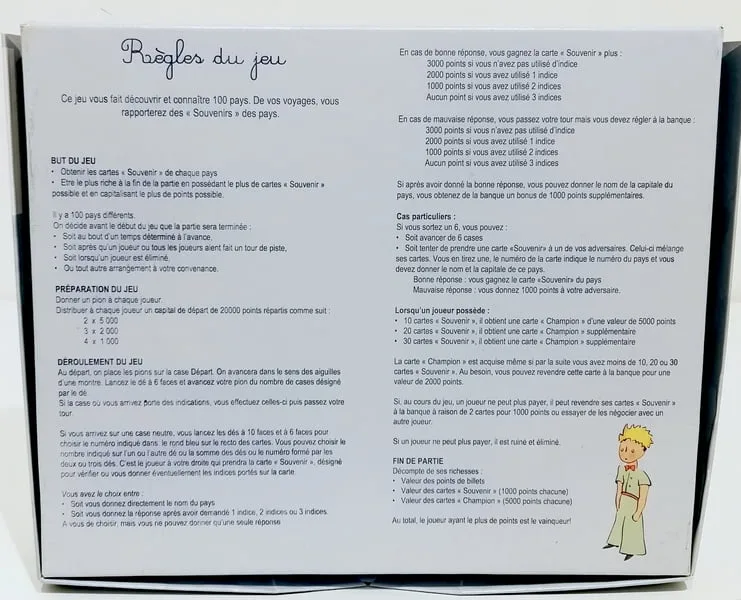 Règles du jeu
Ce jeu vous fait découvrir et connaître 100 pays. De vos voyages, vous
rapporterez des « Souvenirs » des pays.
BUT DU JEU
• Obtenir les cartes « Souvenir » de chaque pays
• Etre le plus riche à la fin de la partie en possédant le plus de cartes « Souvenir »
possible et en capitalisant le plus de points possible.
Il y a 100 pays différents.
On décide avant le début du jeu que la partie sera terminée :
• Soit au bout d'un temps déterminé à l'avance,
• Soit après qu'un joueur ou tous les joueurs aient fait un tour de piste,
• Soit lorsqu'un joueur est éliminé,
• Ou tout autre arrangement à votre convenance.
PRÉPARATION DU JEU
Donner un pion à chaque joueur.
Distribuer à chaque joueur un capital de départ de 20000 points répartis comme suit :
2 x 5 000
3 x 2 000
4 x 1 000
DÉROULEMENT DU JEU
Au départ, on place les pions sur la case Départ. On avancera dans le sens des aiguilles
d'une montre. Lancez le dé à 6 faces et avancez votre pion du nombre de cases désigné
par le dé.
Si la case où vous arrivez porte des indications, vous effectuez celles-ci puis passez votre
tour.
Si vous arrivez sur une case neutre, vous lancez les dés à 10 faces et à 6 faces pour
choisir le numéro indiqué dans le rond bleu sur le recto des cartes. Vous pouvez choisir le
nombre indiqué sur l'un ou l'autre dé ou la somme des dés ou le numéro formé par les
deux ou trois dés. C'est le joueur à votre droite qui prendra la carte « Souvenir », désigné
pour vérifier ou vous donner éventuellement les indices portés sur la carte.
Vous avez le choix entre :
• Soit vous donnez directement le nom du pays
• Soit vous donnez la réponse après avoir demandé 1 indice, 2 indices ou 3 indices.
A vous de choisir, mais vous ne pouvez donner qu'une seule réponse
En cas de bonne réponse, vous gagnez la carte « Souvenir » plus :
3000 points si vous n'avez pas utilisé d'indice
2000 points si vous avez utilisé 1 indice
1000 points si vous avez utilisé 2 indices
Aucun point si vous avez utilisé 3 indices
En cas de mauvaise réponse, vous passez votre tour mais vous devez régler à la banque :
3000 points si vous n'avez pas utilisé d'indice
2000 points si vous avez utilisé 1 indice
1000 points si vous avez utilisé 2 indices
Aucun point si vous avez utilisé 3 indices
Si après avoir donné la bonne réponse, vous pouvez donner le nom de la capitale du
pays, vous obtenez de la banque un bonus de 1000 points supplémentaires.
Cas particuliers :
Si vous sortez un 6, vous pouvez :
• Soit avancer de 6 cases
• Soit tenter de prendre une carte «Souvenir» à un de vos adversaires. Celui-ci mélange
ses cartes. Vous en tirez une, le numéro de la carte indique le numéro du pays et vous
devez donner le nom et la capitale de ce pays.
Bonne réponse : vous gagnez la carte «Souvenir» du pays
Mauvaise réponse : vous donnez 1000 points à votre adversaire.
Lorsqu'un joueur possède :
• 10 cartes « Souvenir », il obtient une carte « Champion » d'une valeur de 5000 points
• 20 cartes « Souvenir », il obtient une carte « Champion » supplémentaire
• 30 cartes « Souvenir », il obtient une carte « Champion » supplémentaire
La carte « Champion » est acquise même si par la suite vous avez moins de 10, 20 ou 30
cartes « Souvenir ». Au besoin, vous pouvez revendre cette carte à la banque pour une
valeur de 2000 points.
Si, au cours du jeu, un joueur ne peut plus payer, il peut revendre ses cartes « Souvenir »
à la banque à raison de 2 cartes pour 1000 points ou essayer de les négocier avec un
autre joueur.
Si un joueur ne peut plus payer, il est ruiné et éliminé.
FIN DE PARTIE
Décompte de ses richesses :
• Valeur des points de billets
• Valeur des cartes « Souvenir » (1000 points chacune)
• Valeur des cartes « Champion » (5000 points chacune)
Au total, le joueur ayant le plus de points est le vainqueur!